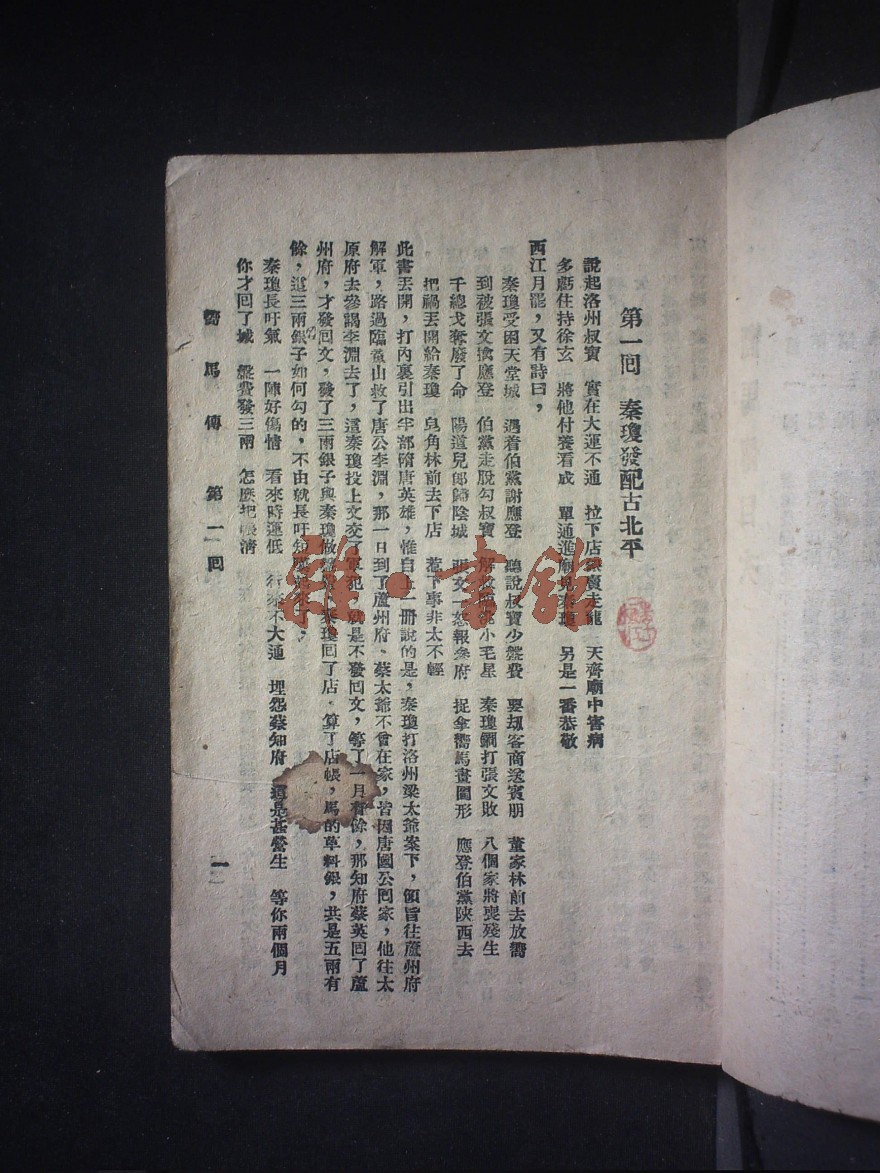 第一回 秦瓊發配古北平
說起洛州叔寶 實在大運不通 拉下店 賣走龍 天齊廟中害病
多虧住持徐玄 將他付養看成 單通進廟見秦瓊 另是一番恭敬
西江月罷，又有詩曰，
秦瓊受困天堂城 遇着伯黨謝應登 聽說叔寶少盤費 要刼客商送賓朋 董家林前去放嚮
到被張文擒應登 伯黨走脫勾叔寶 解救 小毛星 秦瓊鐧打張文敗 八個家將喪殘生
千總戈奪廢了命 陽道兒郎歸陰城 張文一怒報參府 捉拿嚮馬畫圖形 應登伯黨陝西去
把禍丟開給秦瓊 皂角林前去下店 惹下事非太不輕
此書丟開，打內裏引出半部隋唐英雄，惟自上一冊說的是，秦瓊打洛州梁太爺案下，領旨往蘆州府
解軍，路過臨 山救了唐公李淵，那一日到了蘆州府，蔡太爺不曾在家，皆因唐國公囘家，他往太
原府去參謁李淵去了，這秦瓊投上文交了軍犯，就是不發回文，等了一月有餘，那知府蔡英囘了蘆
州府，才發回文，發了三兩銀子與秦瓊做盤費，秦瓊回了店，算了店帳，馬的草料銀，共是五兩有
餘，這三兩銀子如何勾的，不由就長吁短
秦瓊長吁氣 一陣好傷情 看來時運低 行 不大通 埋怨蔡知府 這是甚營生 等你兩個月
你才回了城 盤費發三兩 怎麼把 清
嚮馬傳 第一回 一
雜·書館